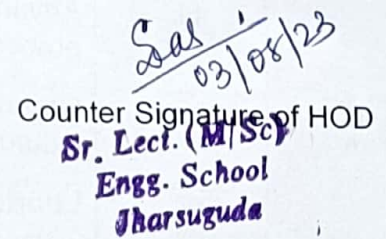 Das
03/08/23
Counter Signature of HOD
Sr. Lect. (M/Sc)
Engg. School
Jharsuguda